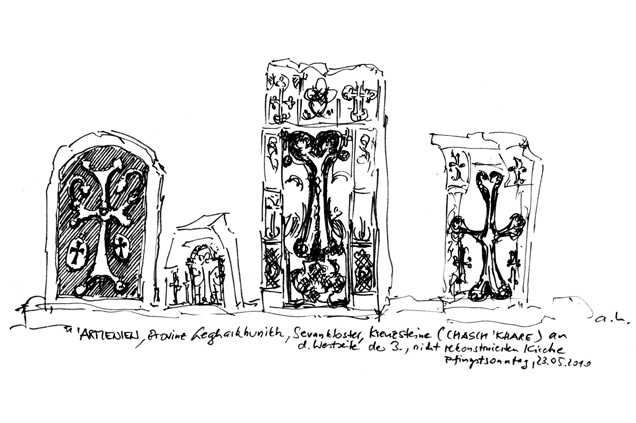 a.h.
"ARMENIEN, Provinz Gegharkhunikh, Sevankloster, Kreuzsteine (CHASCH'KHARE) an
d. Westseite der 3., nicht rekonstruierten Kirche
Pfingstsonntag, 23.05.2010